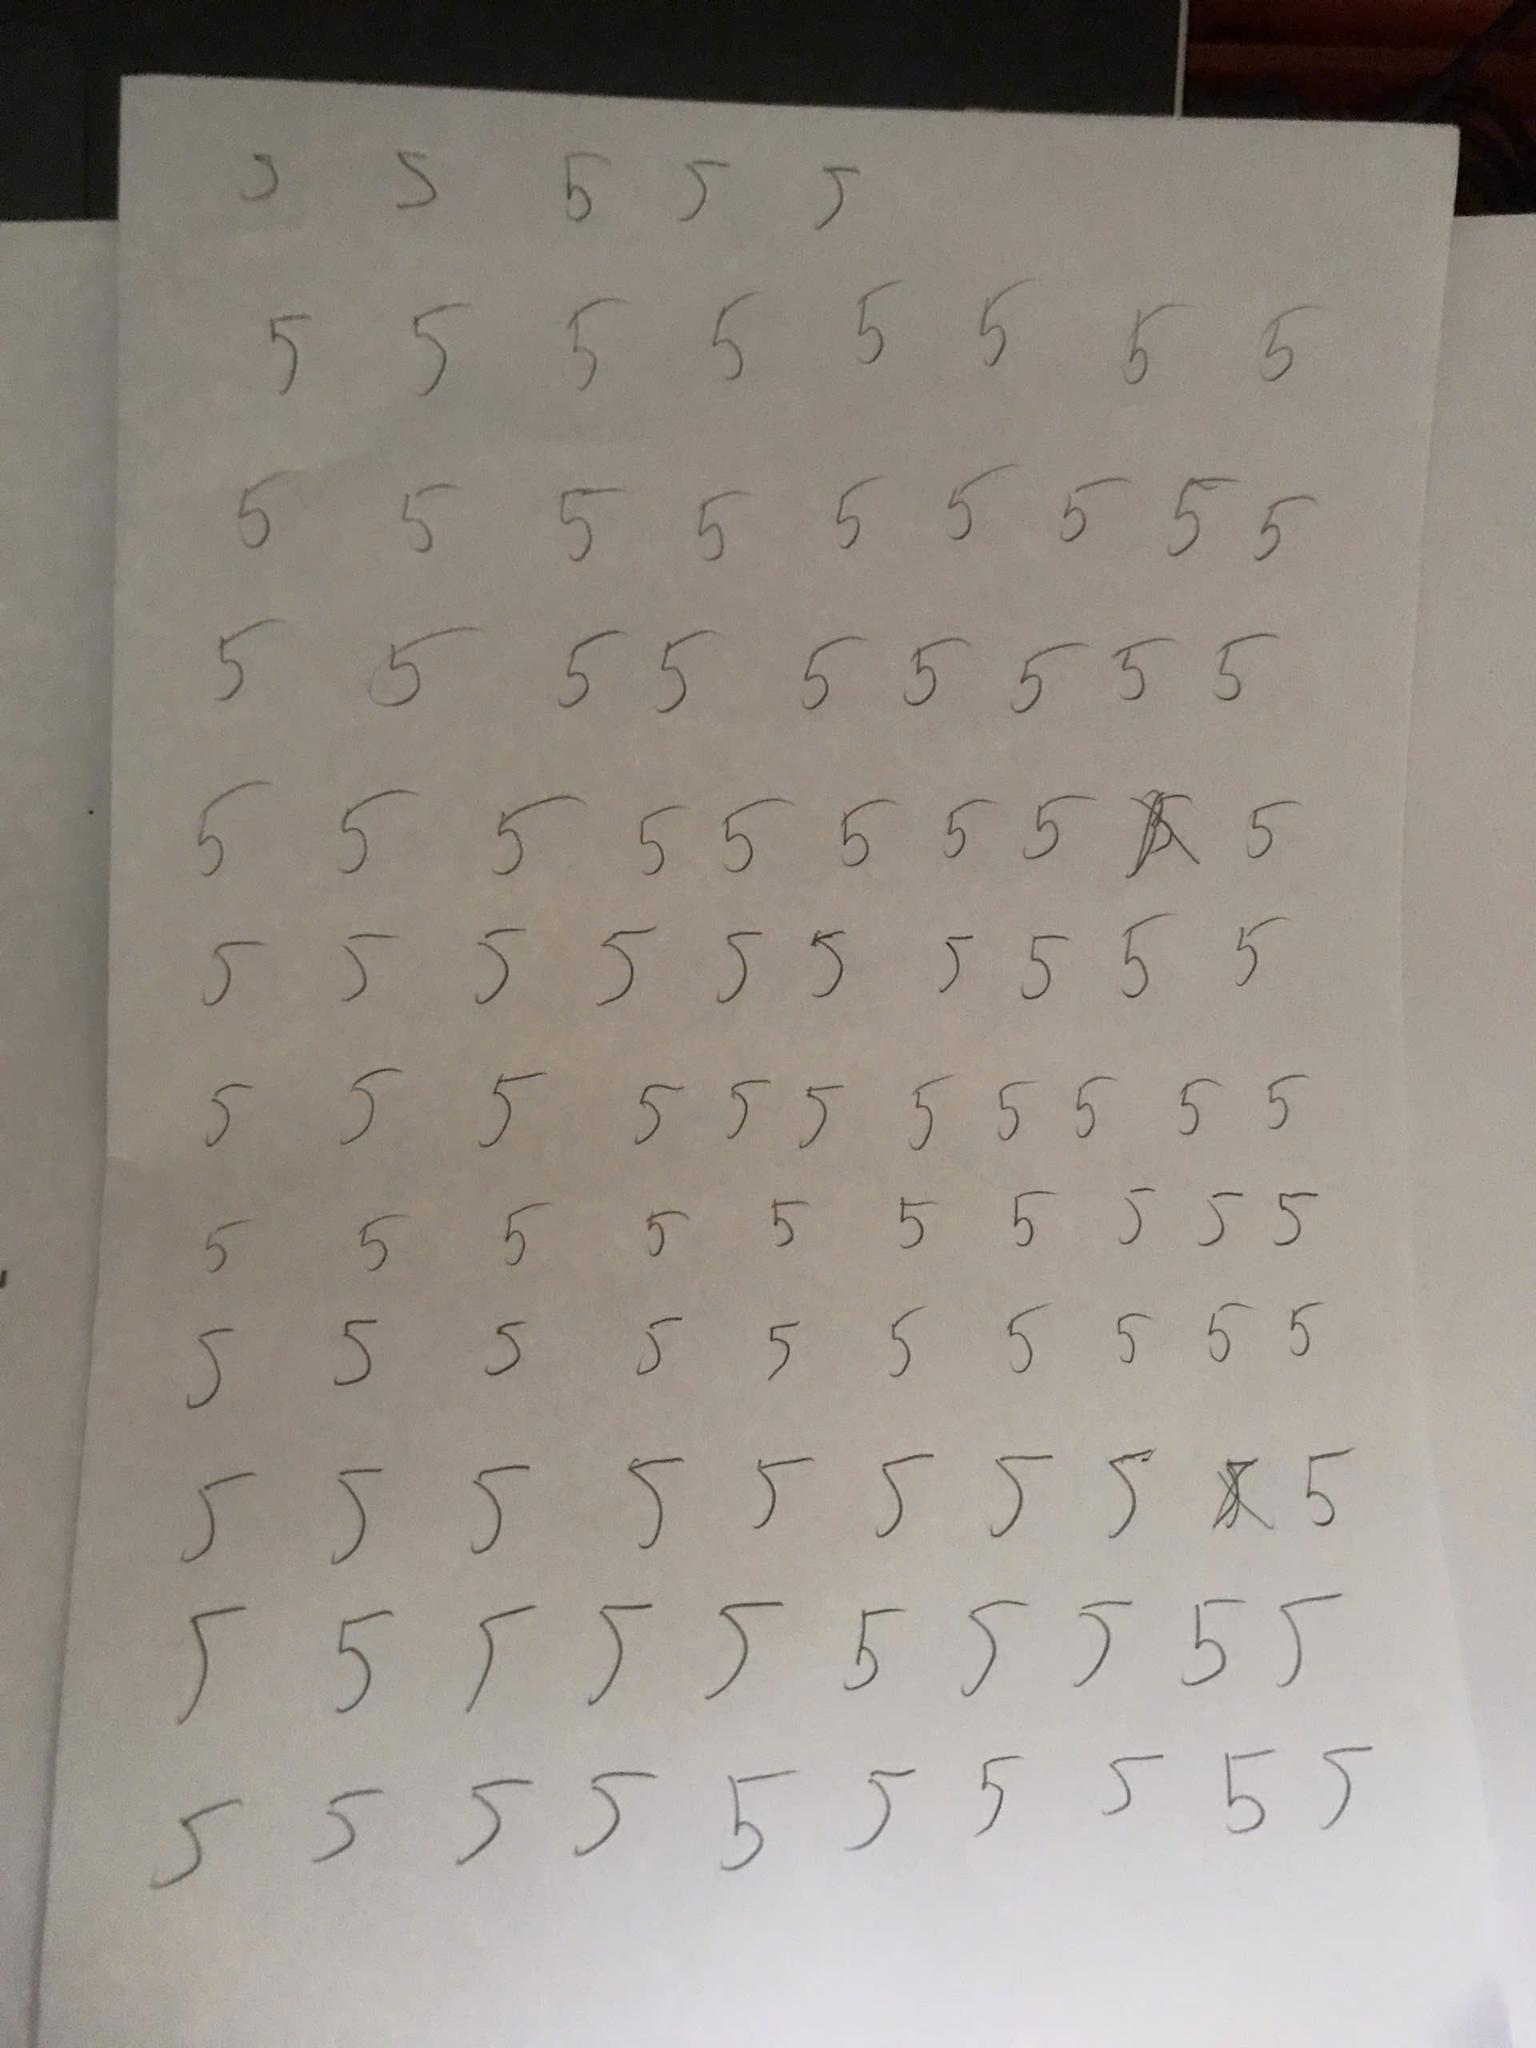 5 5 5 5 5
5 5 5 5 5 5 5 5
5 5 5 5 5 5 5 5 5
5 5 5 5 5 5 5 5 5
5 5 5 5 5 5 5 5 5
5 5 5 5 5 5 5 5 5 5
5 5 5 5 5 5 5 5 5 5 5
5 5 5 5 5 5 5 5 5 5
5 5 5 5 5 5 5 5 5 5
5 5 5 5 5 5 5 5 5
5 5 5 5 5 5 5 5 5 5
5 5 5 5 5 5 5 5 5 5